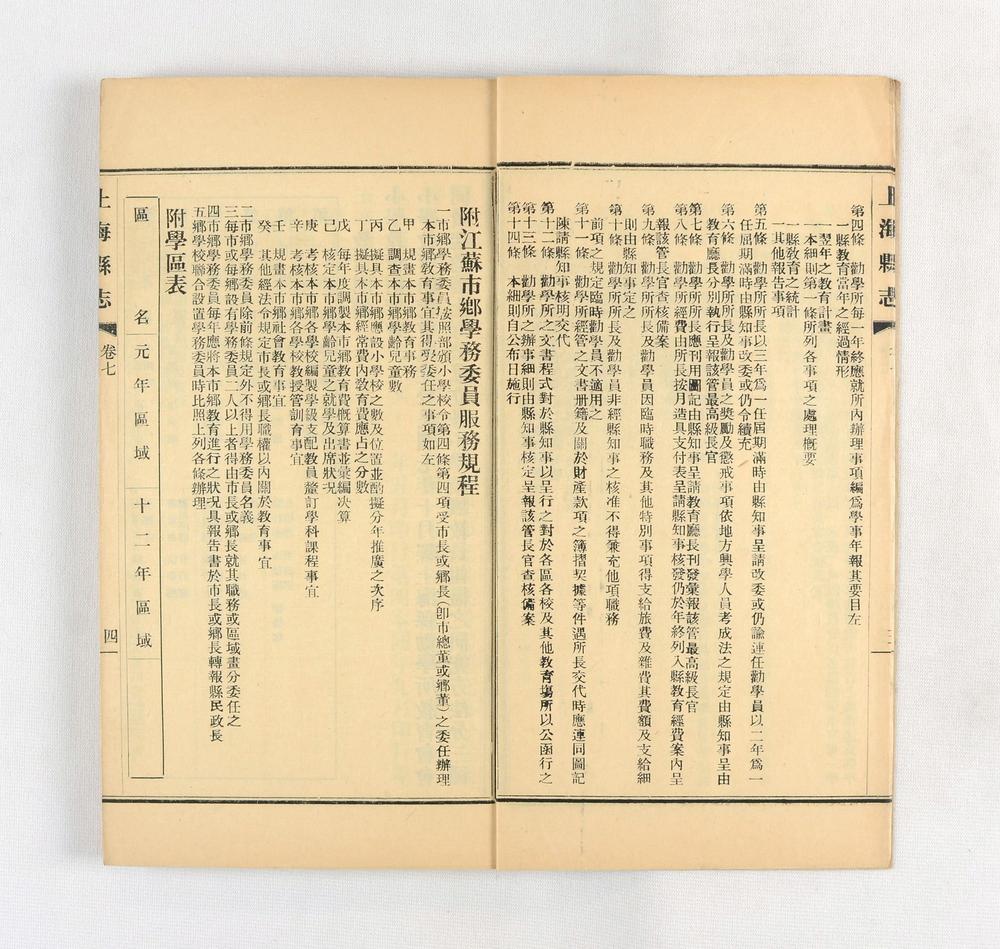 上海縣志
第四條　勸學所每一年終應就所內辦理事項編爲學事年報其要目左
一縣教育當年之經過情形
一翌年之教育計畫
一本細則第一條所列各事項之處理槪要
一縣敎育之統計
一其他報告事項
第五條　勸學所所長以三年爲一任屆期滿時由縣知事呈請改委或仍諭連任勸學員以二年爲一
任屆期滿時由縣知事改委或仍令續充
第六條　勸學所所長及勸學員之奬勵及懲戒事項依地方興學人員考成法之規定由縣知事呈由
教育廳長分別執行呈報該管最高級長官
第七條　勸學所所長應刊用圖記由縣知事呈請教育廳長刊發彙報該管最高級長官
第八條　勸學所經費由所長按月造具支付表呈請縣知事核發仍於年終列入縣教育經費案內呈
報該管長官查核備案
第九條　勸學所所長及勸學員因臨時職務及其他特別事項得支給旅費及雜費其費額及支給細
則由縣知事定之
第十條　勸學所所長及勸學員非經縣知事之核准不得兼充他項職務
前項之規定臨時勸學員不適用之
第十一條　勸學所經管之文書册籍及關於財產款項之簿摺契據等件遇所長交代時應連同圖記
陳請縣知事核明交代
第十二條　勸學所之文書程式對於縣知事以呈行之對於各區各校及其他教育塲所以公函行之
第十三條　勸學所之辦事細則由縣知事核定呈報該管長官查核備案
第十四條　本細則自公布日施行
附江蘇市鄕學務委員服務規程
一市鄕學務委員按照部頒小學校令第四條第四項受市長或鄕長（卽市總董或鄕董）之委任辦理
本市鄕敎育事宜其得受委任之事項如左
甲　規畫本市鄕教育事務
乙　調查本市鄕學齡兒童數
丙　擬具本市鄕應設小學校之數及位置並酌擬分年推廣之次序
丁　擬具本市鄕經常費內敎育費應占之分數
戊　每年度調製本市鄕教育費槪算書並彙編决算
己　核定本市鄕學齡兒童之就學及出席狀况
庚　考核本市鄕各學校編製學級支配教員釐訂學科課程事宜
辛　考核本市鄕各學校教授管訓育事宜
壬　規畫本市鄕社會教育事宜
癸　其他經法令規定市長或鄕長職權以內關於教育事宜
二市鄕學務委員除前條規定外不得用學務委員名義
三每市或每鄕設有學務委員二人以上者得由市長或鄕長就其職務或區域畫分委任之
四市鄕學務委員每年應將本市鄕教育進行之狀况具報告書於市長或鄕長轉報縣民政長
五鄕學校聯合設置學務委員時比照上列各條辦理
附學區表
區　名　元年區域　十二年區域
上海縣志　卷七　四